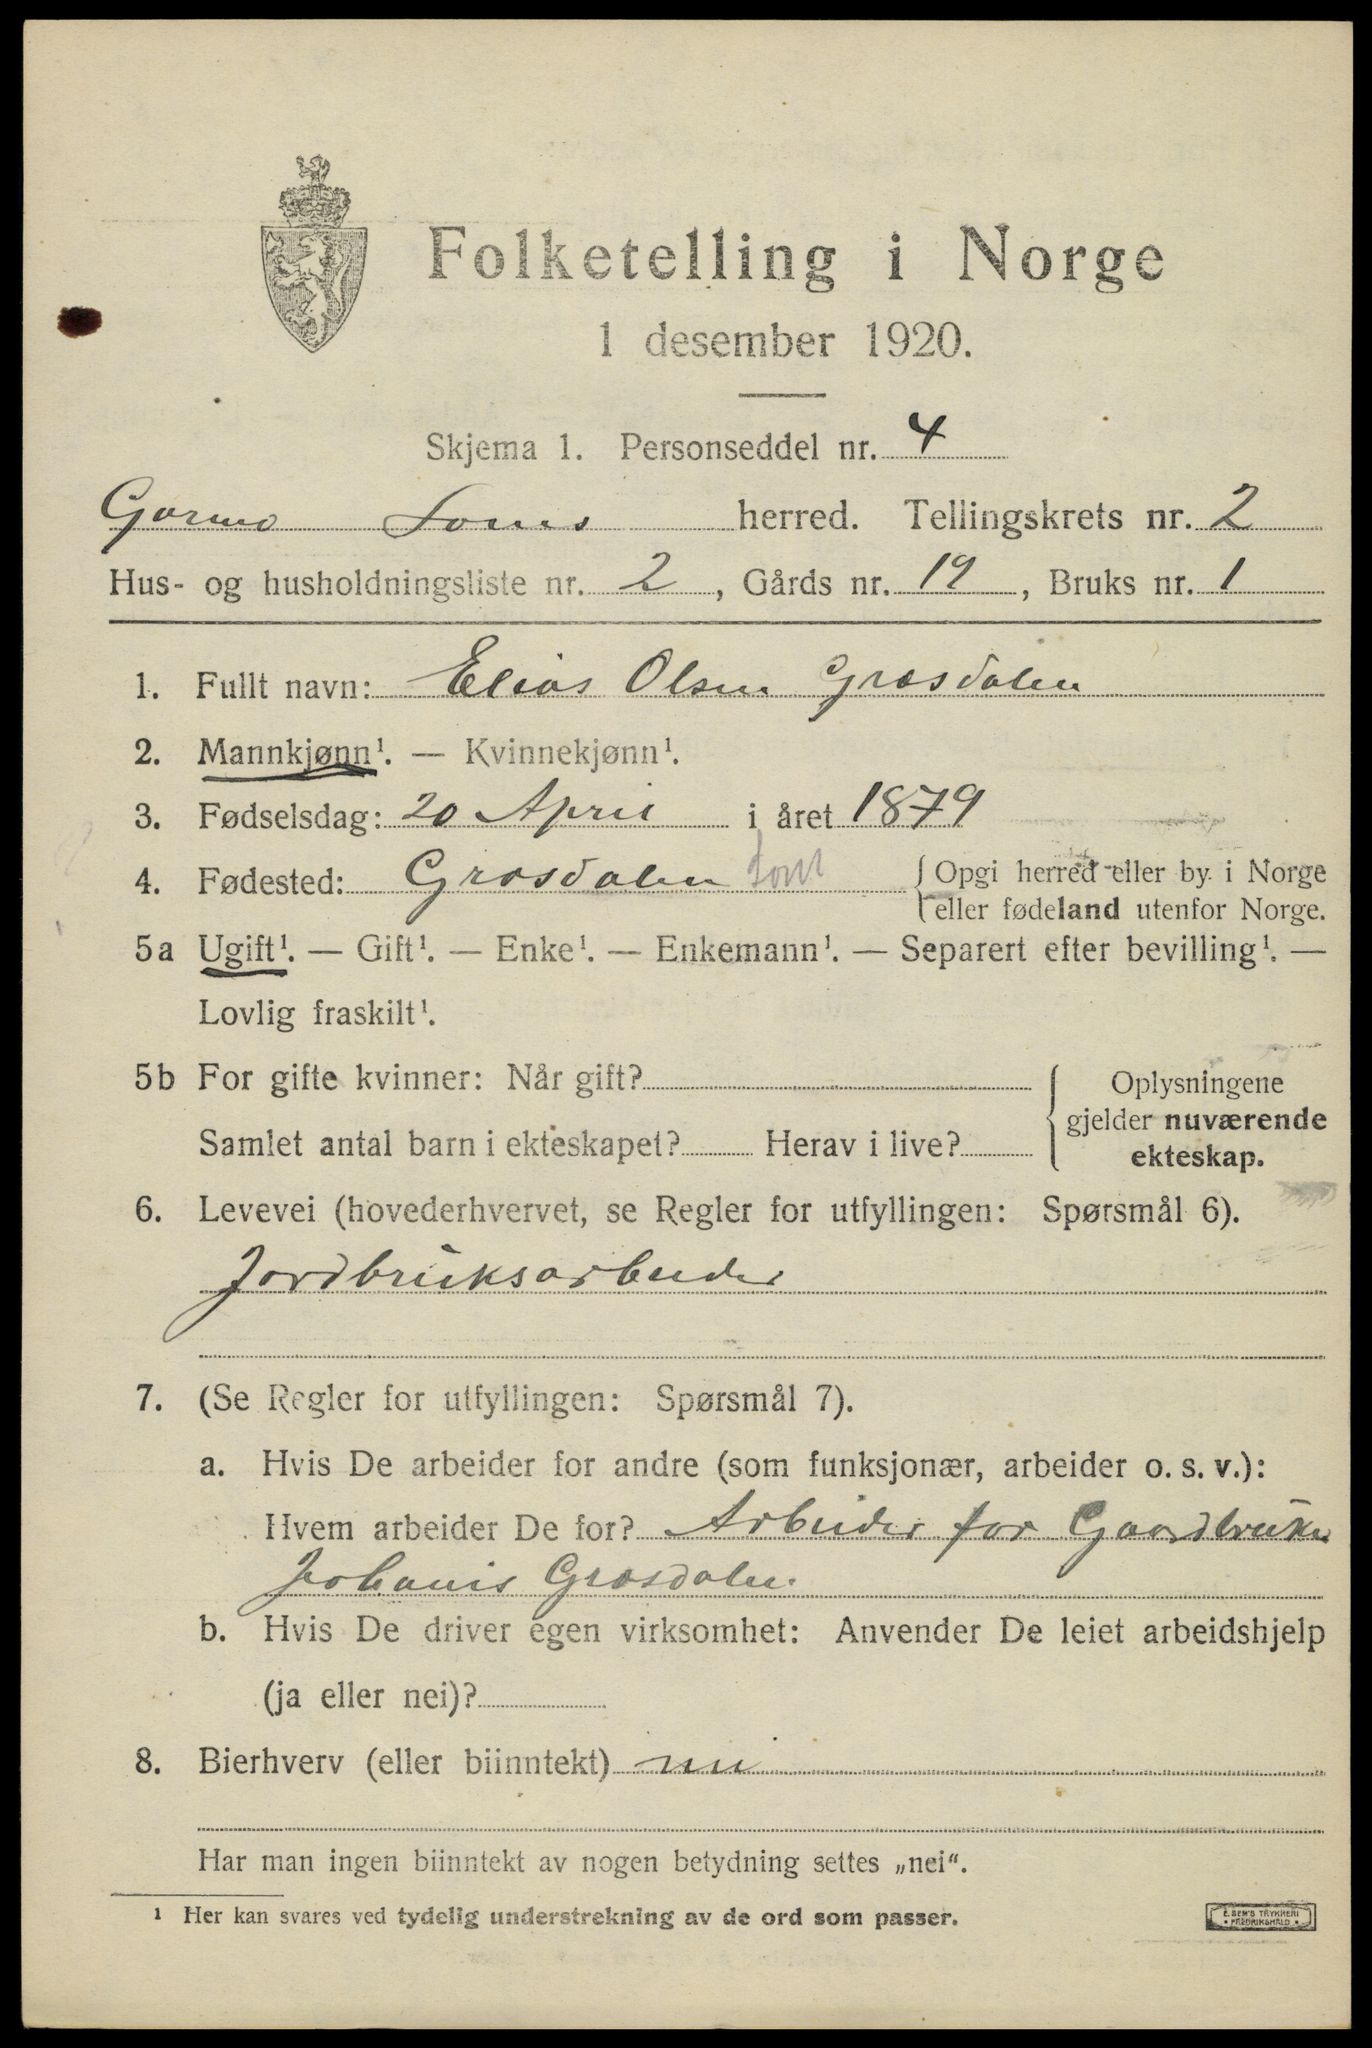 Folketelling i Norge
1 desember 1920.
Skjema 1. Personseddel nr. 4
Garmo Loms herred. Tellingskrets nr. 2
Hus- og husholdningsliste nr. 2, Gårds nr. 19, Bruks nr. 1
1. Fullt navn: Elias Olsen Grøsdalen
2. Mannkjønn¹. — Kvinnekjønn¹.
3. Fødselsdag: 20 April i året 1879
4. Fødested: Grøsdalen Lom { Opgi herred eller by i Norge
eller fødeland utenfor Norge.
5a Ugift¹. — Gift¹. — Enke¹. — Enkemann¹. — Separert efter bevilling¹. —
Lovlig fraskilt¹.
5b For gifte kvinner: Når gift?
Samlet antal barn i ekteskapet? Herav i live?
Oplysningene
gjelder nuværende
ekteskap.
6. Levevei (hovederhvervet, se Regler for utfyllingen: Spørsmål 6).
Jordbruksarbeider
7. (Se Regler for utfyllingen: Spørsmål 7).
a. Hvis De arbeider for andre (som funksjonær, arbeider o. s. v.):
Hvem arbeider De for? Arbeider for Gaardbruker
Johanis Grøsdalen.
b. Hvis De driver egen virksomhet: Anvender De leiet arbeidshjelp
(ja eller nei)?
8. Bierhverv (eller biinntekt) nei
Har man ingen biinntekt av nogen betydning settes „nei“.
¹ Her kan svares ved tydelig understrekning av de ord som passer.
E. SEM'S TRYKKERI
• FREDRIKSHALD •